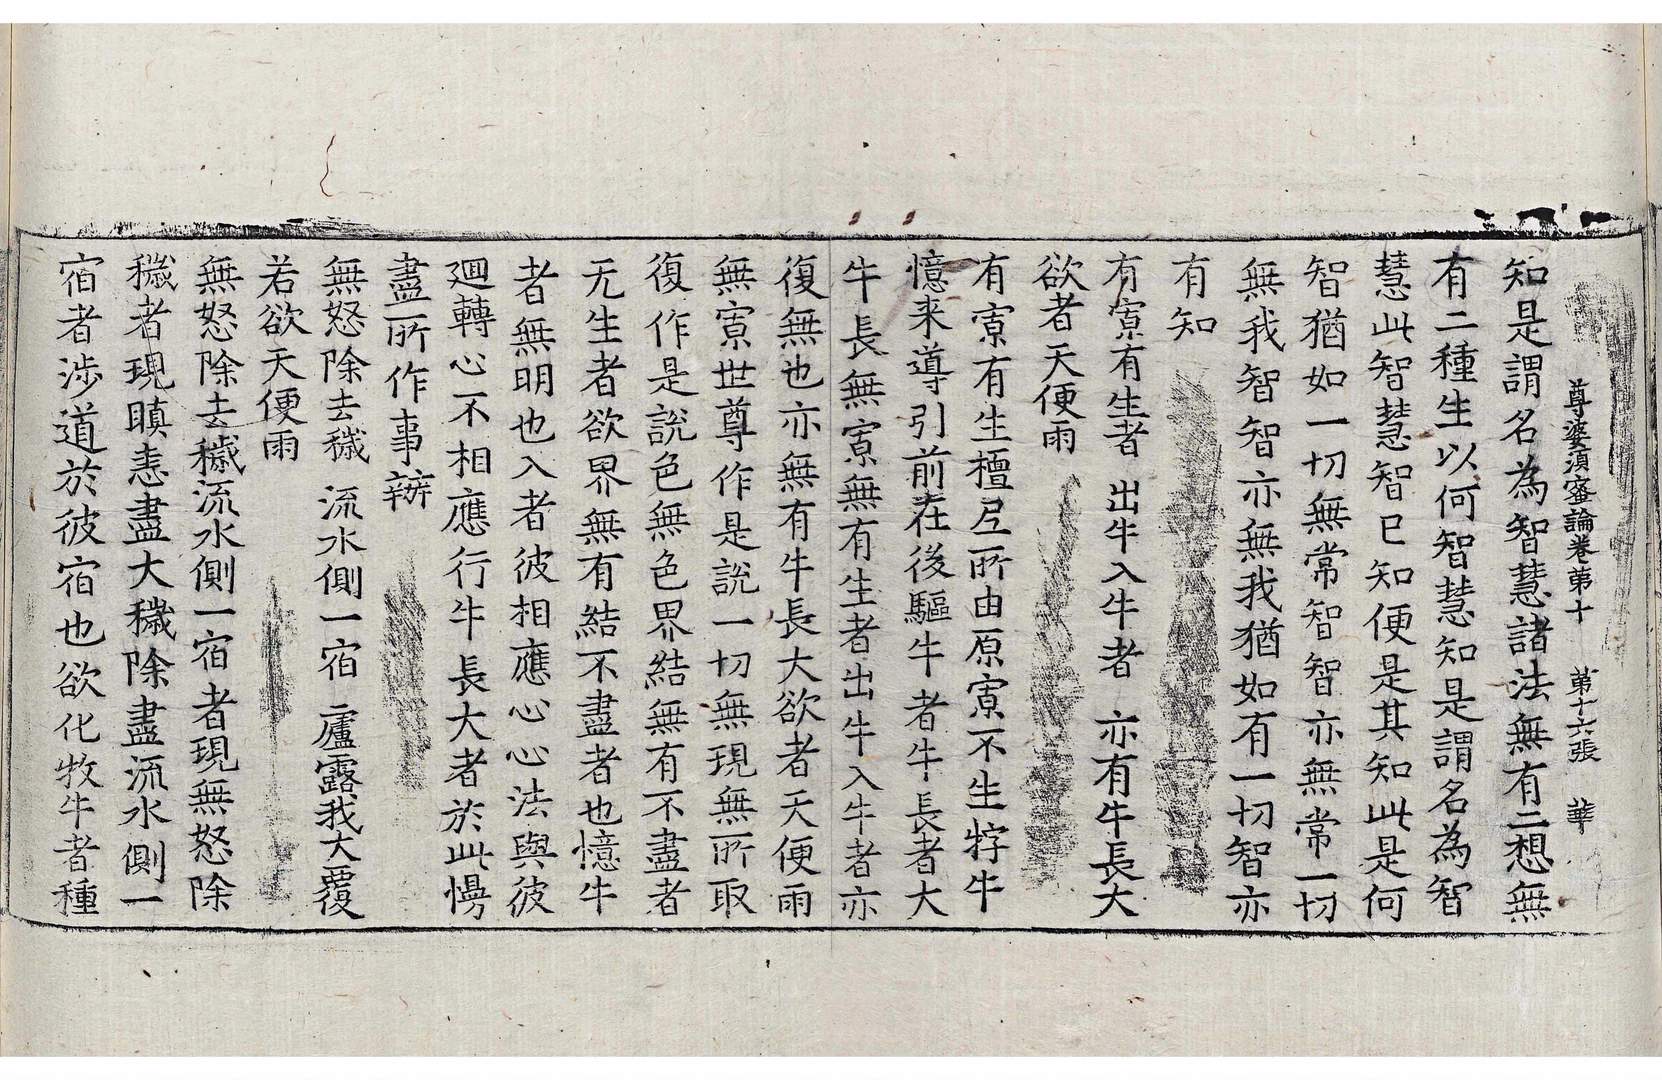 尊婆須蜜論卷第十 第十六張 華
知是謂名為智慧諸法無有二想無
有二種生以何智慧知是謂名為智
慧此智慧智已知便是其知此是何
智猶如一切無常智智亦無常一切
無我智智亦無我猶如有一切智亦
有知
有𡩋有生者 出牛入牛者 亦有牛長大
欲者天便雨
有𡩋有生檀㞐所由原𡩋不生牸牛
憶来導引前在後驅牛者牛長者大
牛長無𡩋無有生者出牛入牛者亦
復無也亦無有牛長大欲者天便雨
無𡩋世尊作是說一切無現無所取
復作是說色無色界結無有不盡者
无生者欲界無有結不盡者也憶牛
者無明也入者彼相應心心法與彼
迴轉心不相應行牛長大者於此慢
盡所作事辦
無怒除去穢 流水側一宿 廬露我大覆
若欲天便雨
無怒除去穢流水側一宿者現無怒除
穢者現瞋恚盡大穢除盡流水側一
宿者涉道於彼宿也欲化牧牛者種